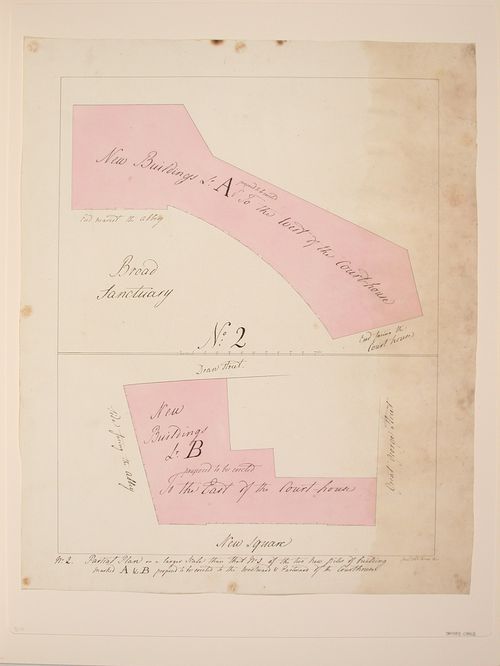 New Buildings Lr. A proposed to be erected
To the West of the Courthouse
End nearest the abbey
Broad
Sanctuary
End facing the
Court house
No. 2
Dean Street.
New
Buildings
Lr. B
proposed to be erected
To the East of the Court house
New Square
No. 2. Partial Plan on a larger Scale than that No. 1 of the two New piles of building
marked A & B, proposed to be erected to the Westward & Eastward of the Courthouse